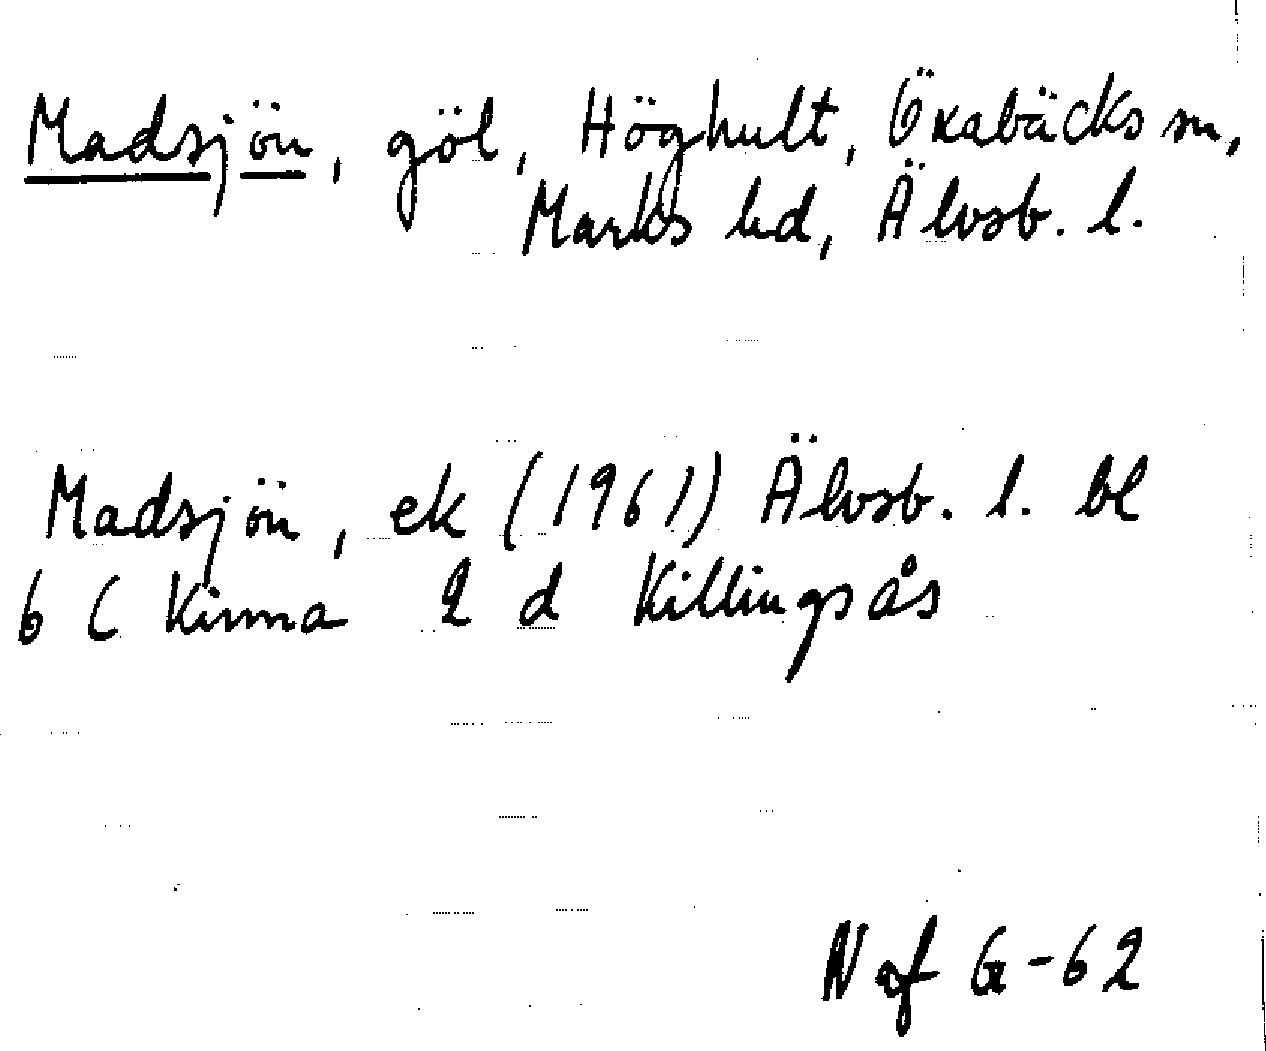 Madsjön, göl, Höghult, Öxabäcks sn,
Marks hd, Älvsb. l.
Madsjön, ek (1961) Älvsb. l. bl
6 C Kinna 2 d Killingsås
N af G-62